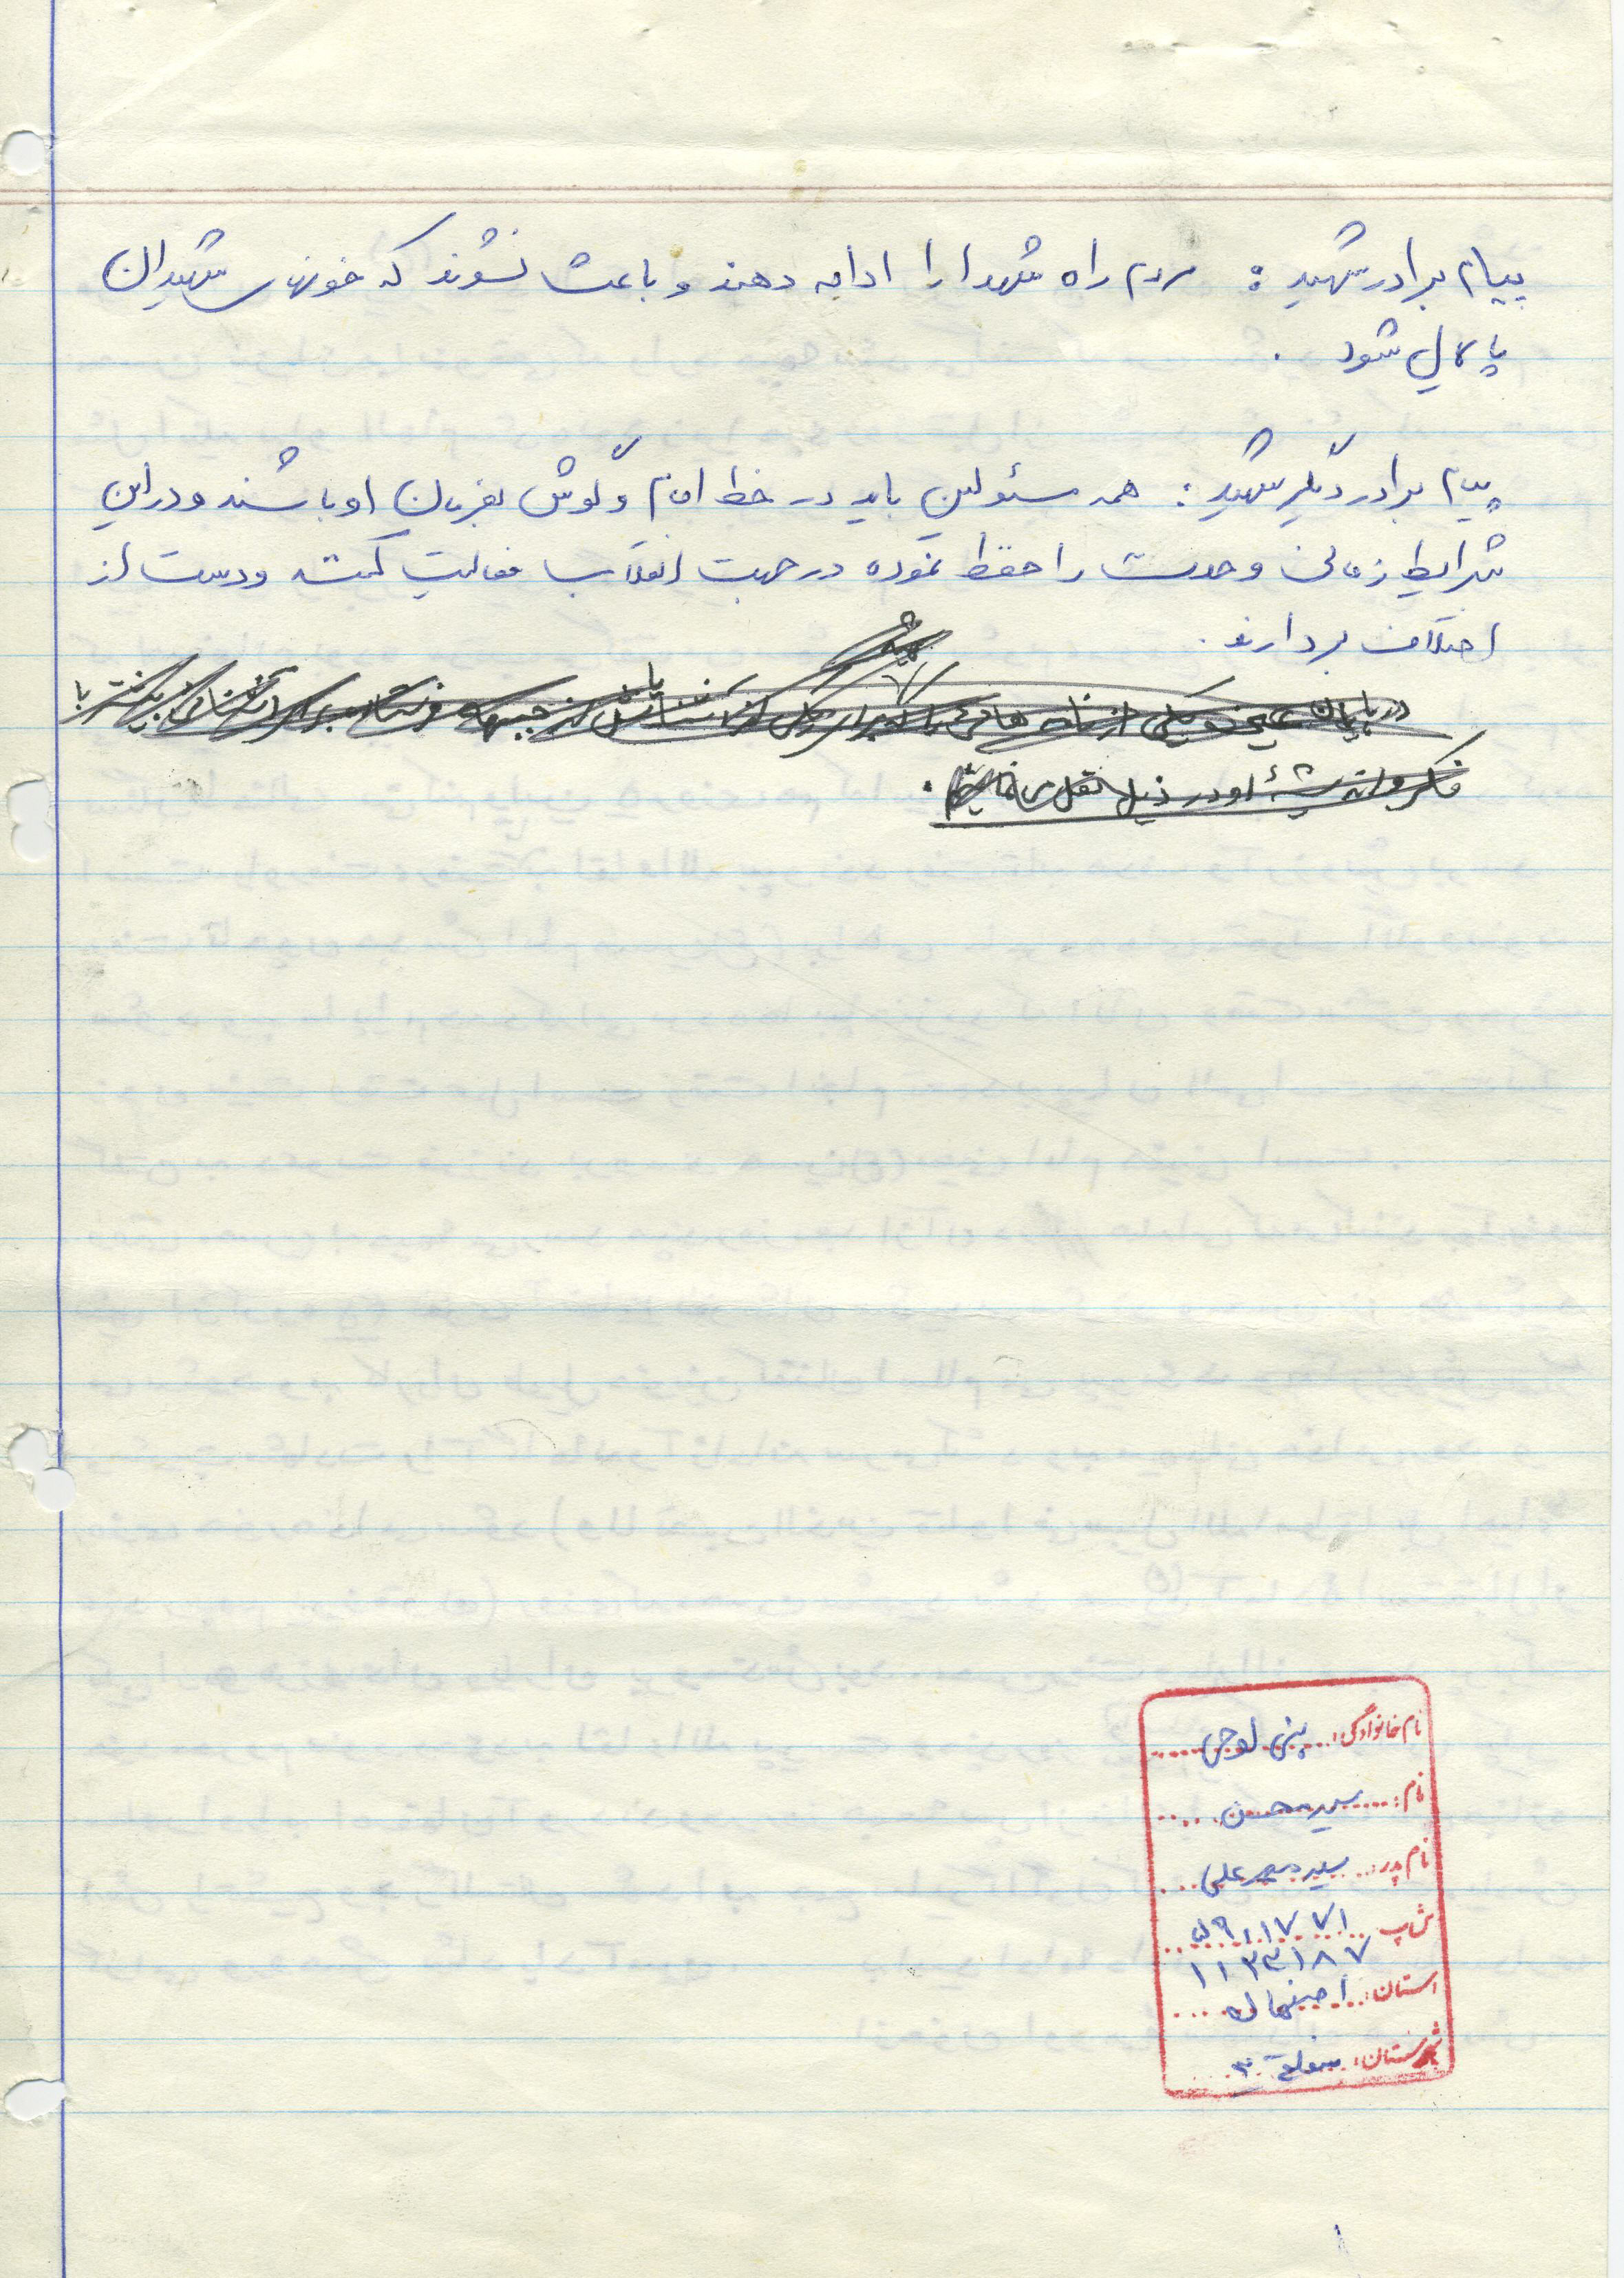 پیام برادر شهید : مردم راه شهدا را ادامه دهند و باعث نشوند که خونهای شهیدان
پایمال شود .
پیام برادر دیگر شهید : همه مسئولین باید در خط امام و گوش بفرمان او باشند و در این
شرایط زمانی وحدت را حفظ نموده در جهت انقلاب فعالیت کنند و دست از
اختلاف بردارند .
در پایان یکی از نامه هائی را که برای یکی از آشنایانش از جبهه فرستاده برای آشنائی بیشتر با
فکر و اندیشهٔ او در ذیل نقل می نمائیم .
نام خانوادگی : بنی لوحی
نام : سید محسن
نام پدر : سید محمد علی
ش پ ۵۹۰۱۷۷۱
۱۱۳۳۱۸۷
استان : اصفهان
شهرستان : منطقه ۳